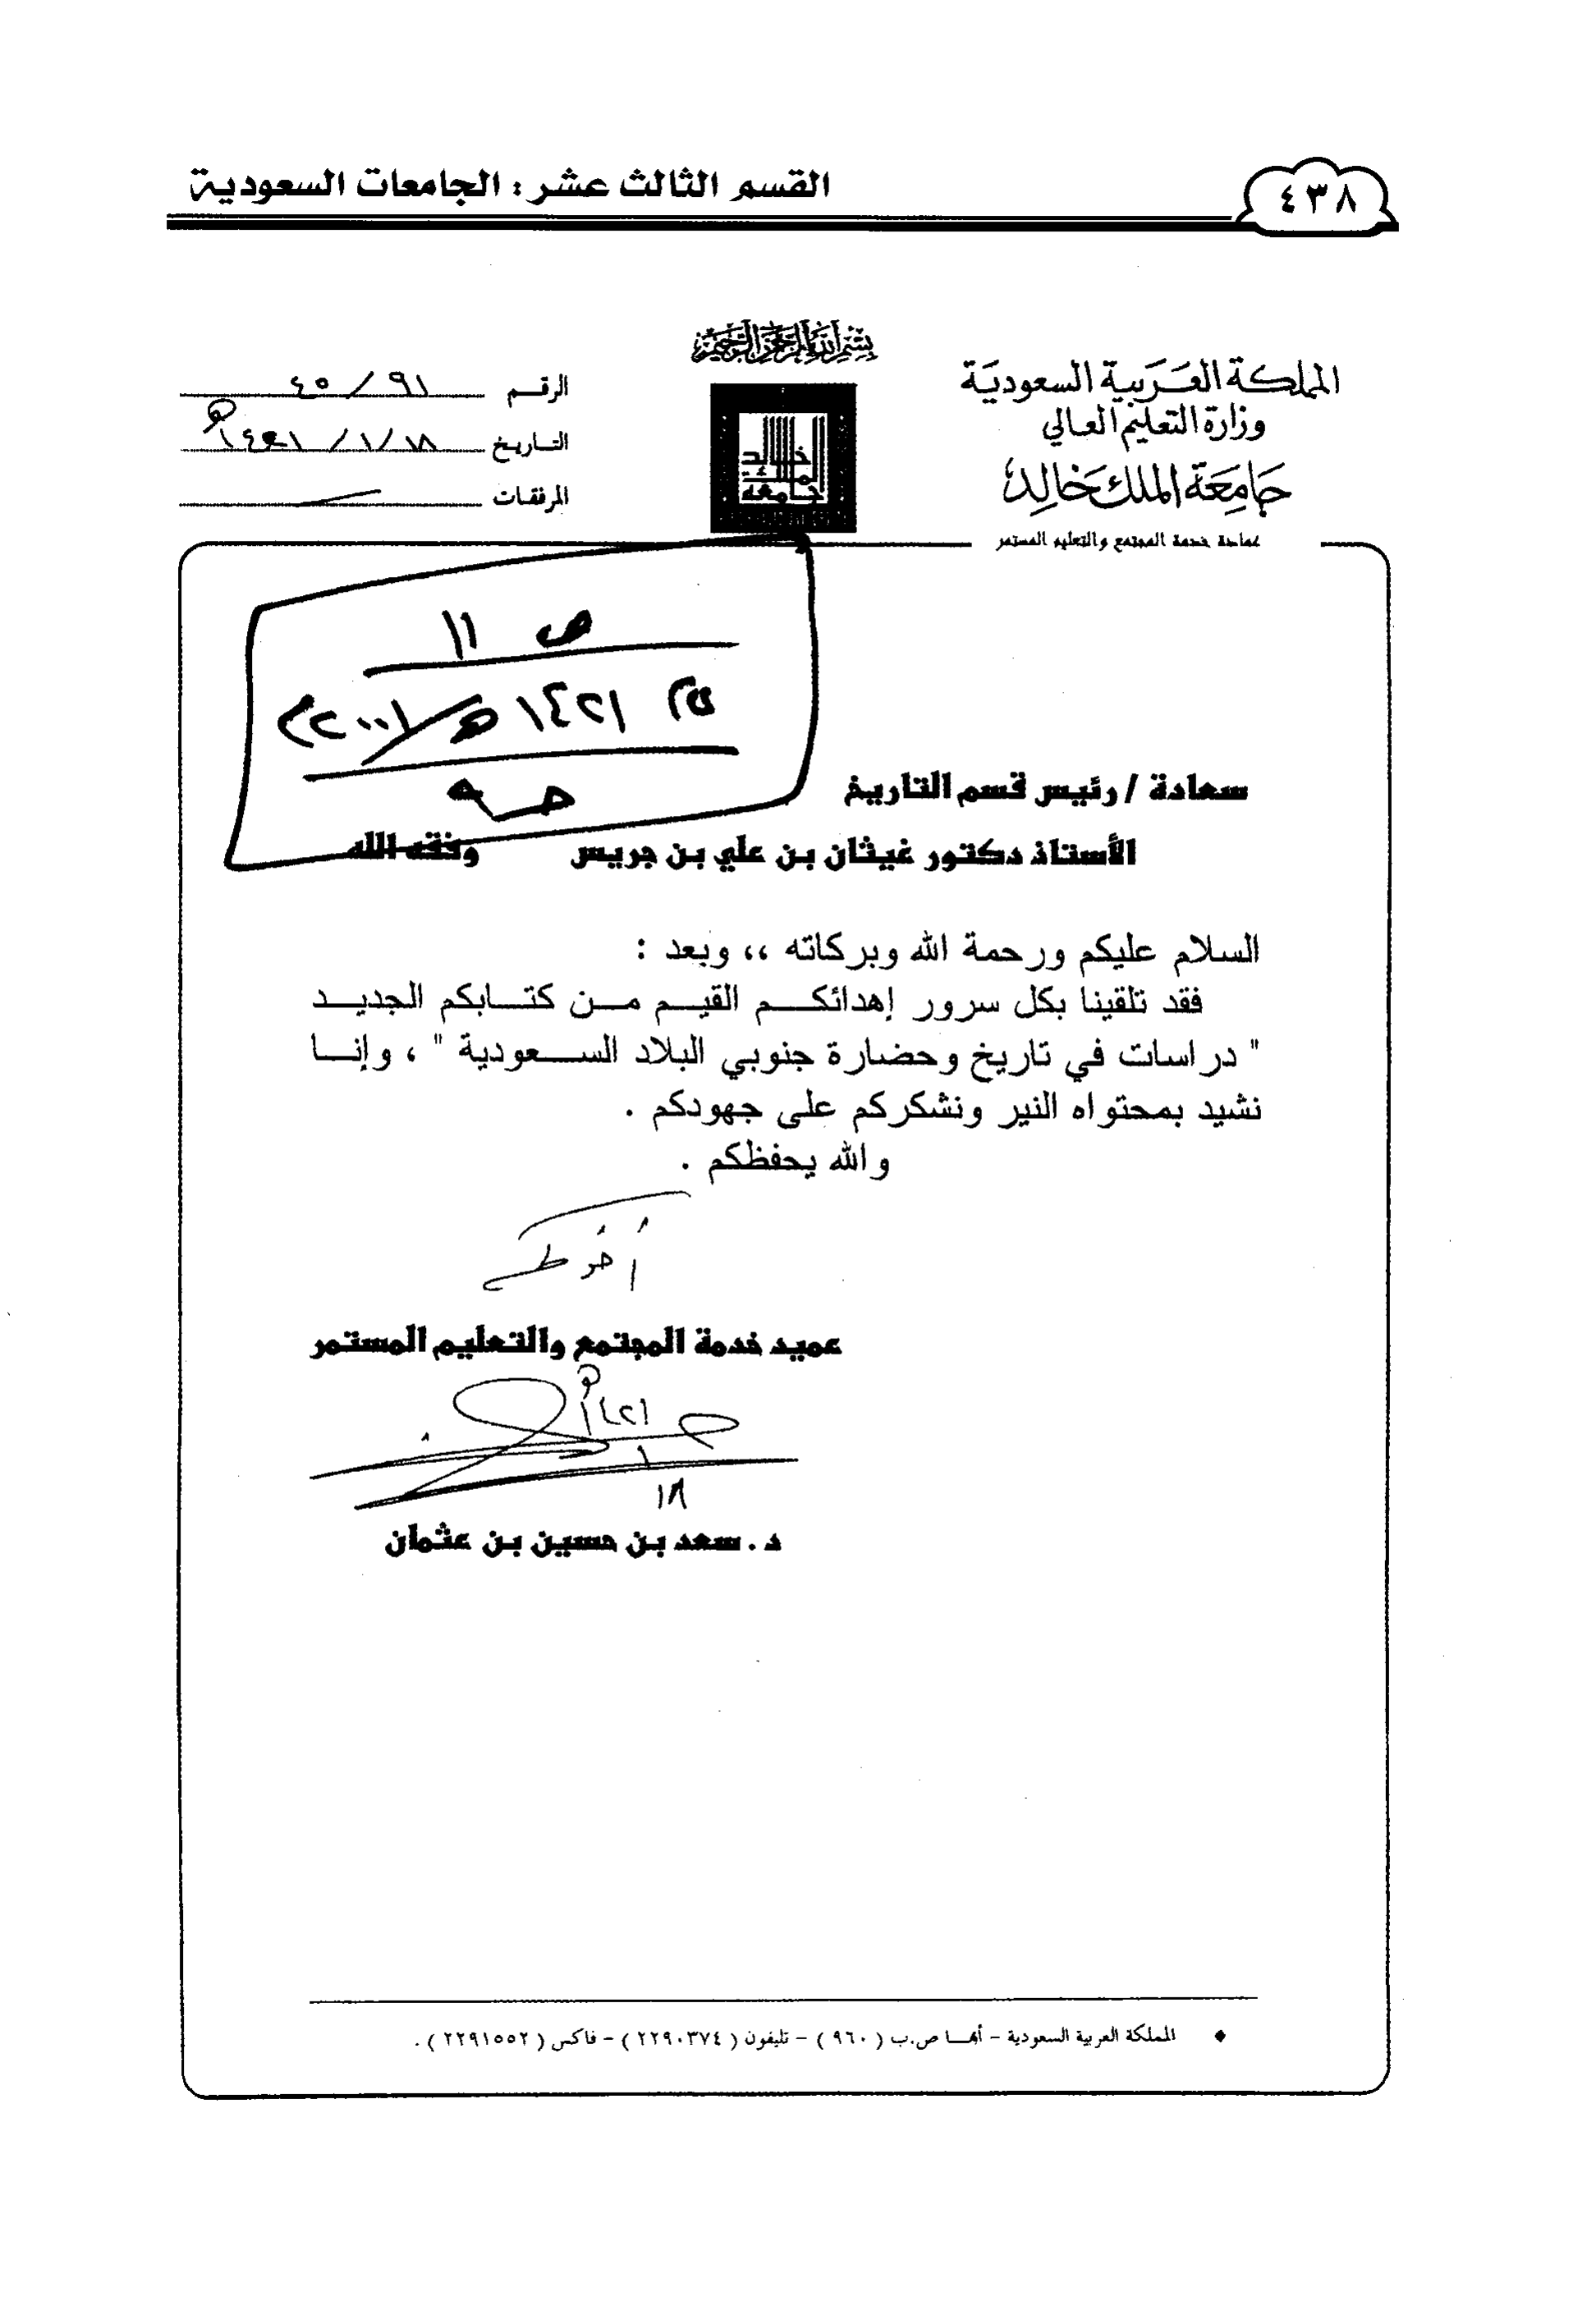 ٤٣٨
القسم الثالث عشر : الجامعات السعودية
بسم الله الرحمن الرحيم
المملكة العربية السعودية
وزارة التعليم العالي
جامعة الملك خالد
عمادة خدمة المجتمع والتعليم المستمر
جامعة الملك خالد
الرقم ٤٥/٩١
التاريخ ١٤٢١/١/١٨هـ
المرفقات
ص ١١
١٤٢١هـ/٢٠٠١م
سعادة / رئيس قسم التاريخ
الأستاذ دكتور غيثان بن علي بن جريس وفقه الله
السلام عليكم ورحمة الله وبركاته ،، وبعد :
فقد تلقينا بكل سرور إهدائكم القيم من كتابكم الجديد
" دراسات في تاريخ وحضارة جنوبي البلاد السعودية " ، وإنا
نشيد بمحتواه النير ونشكركم على جهودكم .
والله يحفظكم .
عميد خدمة المجتمع والتعليم المستمر
١٤٢١هـ
١
١٨
د . سعد بن حسين بن عثمان
♦ المملكة العربية السعودية – أبها ص.ب ( ٩٦٠ ) – تليفون ( ٢٢٩٠٣٧٤ ) – فاكس ( ٢٢٩١٥٥٢ ) .